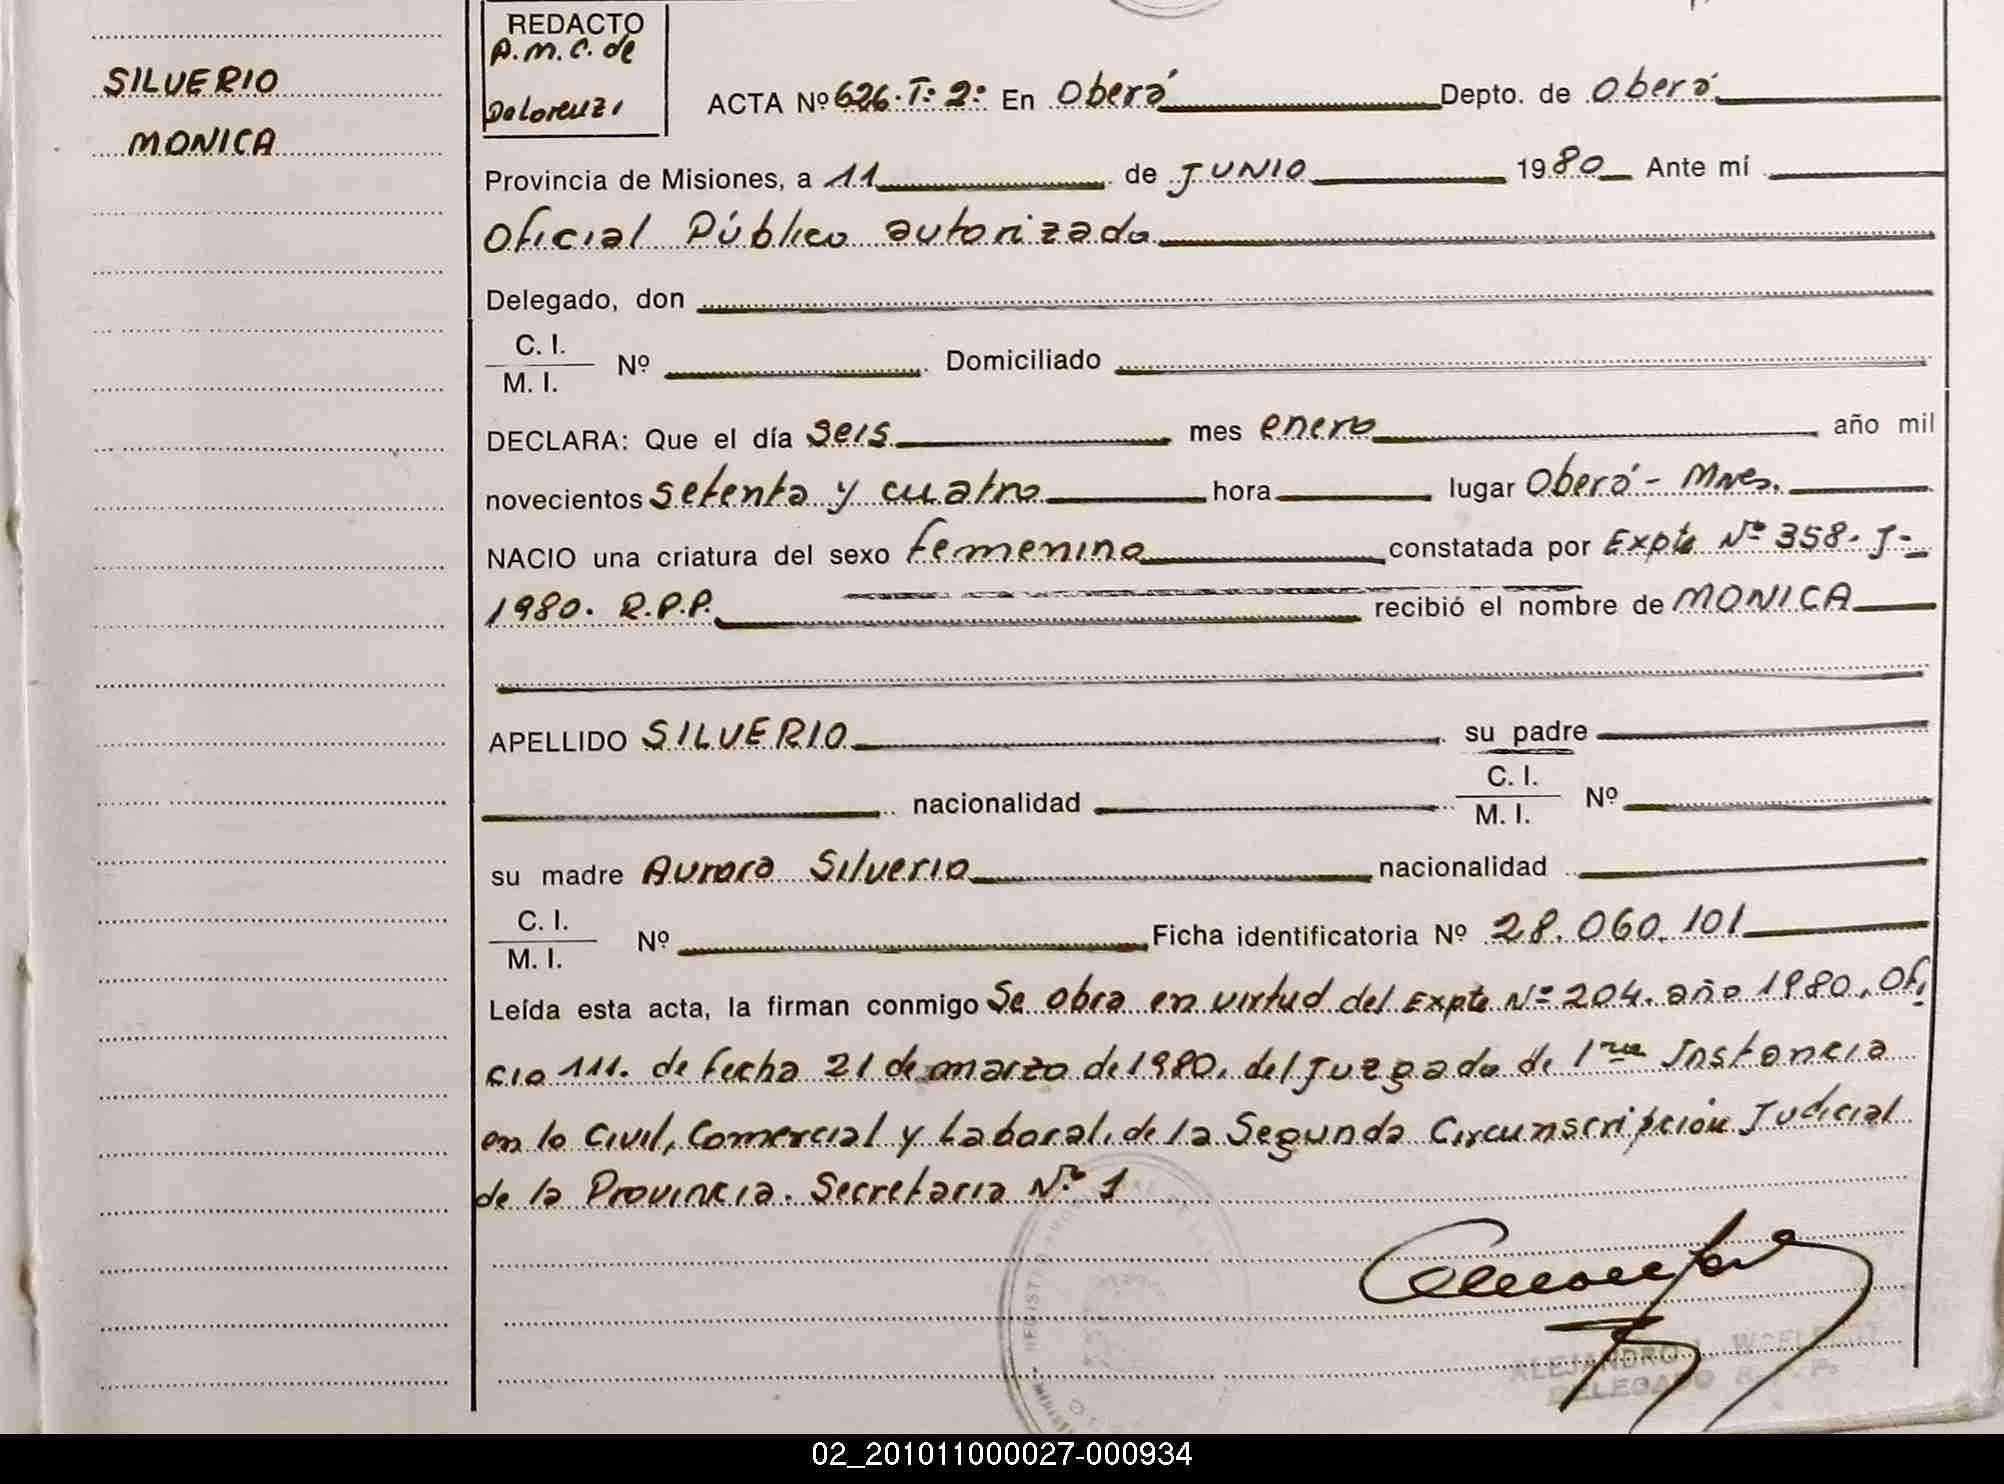 SILVERIO
MONICA
REDACTO
A.M.C. de
DeLorenzi
ACTA Nº 626. T: 2: En Oberá Depto. de Oberá
Provincia de Misiones, a 11 de JUNIO 1980 Ante mí
Oficial Público autorizado
Delegado, don
C. I.
M. I.
Nº Domiciliado
DECLARA: Que el día seis mes enero año mil
novecientos setenta y cuatro hora lugar Oberá - Mnes.
NACIO una criatura del sexo femenino constatada por Expte Nº 358- J-
1980. R.P.P. recibió el nombre de MONICA
APELLIDO SILVERIO su padre
nacionalidad C. I.
M. I. Nº
su madre Aurora Silverio nacionalidad
C. I.
M. I.
Nº Ficha identificatoria Nº 28.060.101
Leída esta acta, la firman conmigo Se obra en virtud del Expte Nº 204. año 1980, Ofi
cio 111. de fecha 21 de marzo de 1980, del Juzgado de 1ra Instancia
en lo Civil, Comercial y Laboral, de la Segunda Circunscripción Judicial
de la Provincia. Secretaria Nº 1
ALEJANDRO
DELEGADO
02_201011000027-000934